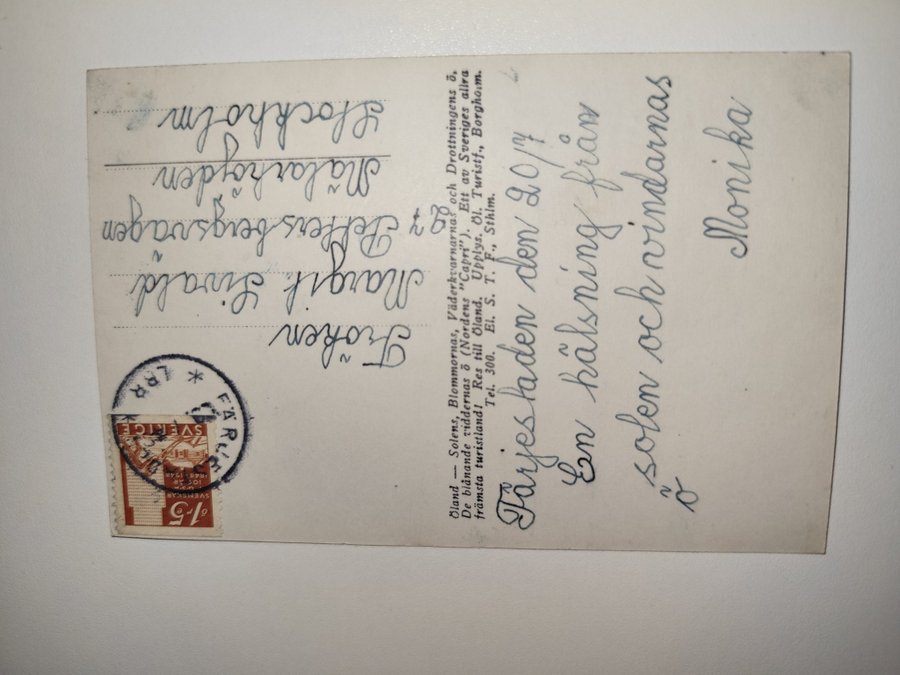 Öland — Solens, Blommornas, Väderkvarnarnas och Drottningens ö.
De blånande viddernas ö (Nordens "Capri"). Ett av Sveriges allra
främsta turistland! Res till Öland. Upplys. Öl. Turistf., Borgholm.
Tel. 300. El. S. T. F., Sthlm.
Färjestaden den 20/7
En hälsning från
solen och vindarnas
ö
Monika
Fröken
Margit Sivald
27 Pettersbergsvägen
Mälarhöjden
Stockholm
15
ÖRE
SVENSKAR
100 ÅR
USA
1848-1948
SVERIGE
LBR